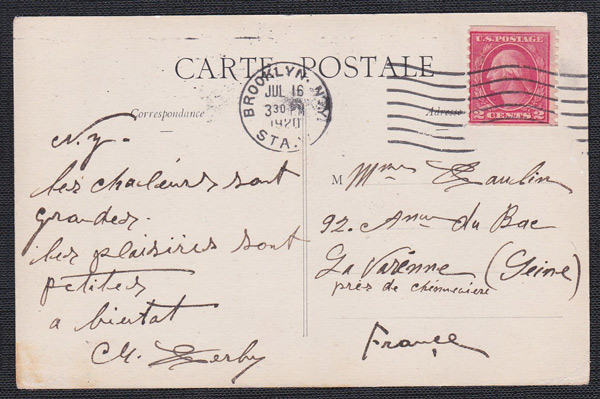 CARTE POSTALE
BROOKLYN, N.Y.
JUL 16
3 30 PM
1920
STA.
U.S. POSTAGE
2 CENTS 2
Correspondance
Adresse
N.y.
les chaleurs sont
grandes.
les plaisires sont
petites
a bientat
M
Mme
92. Anue du Bac
La Varenne (Seine)
près de
France